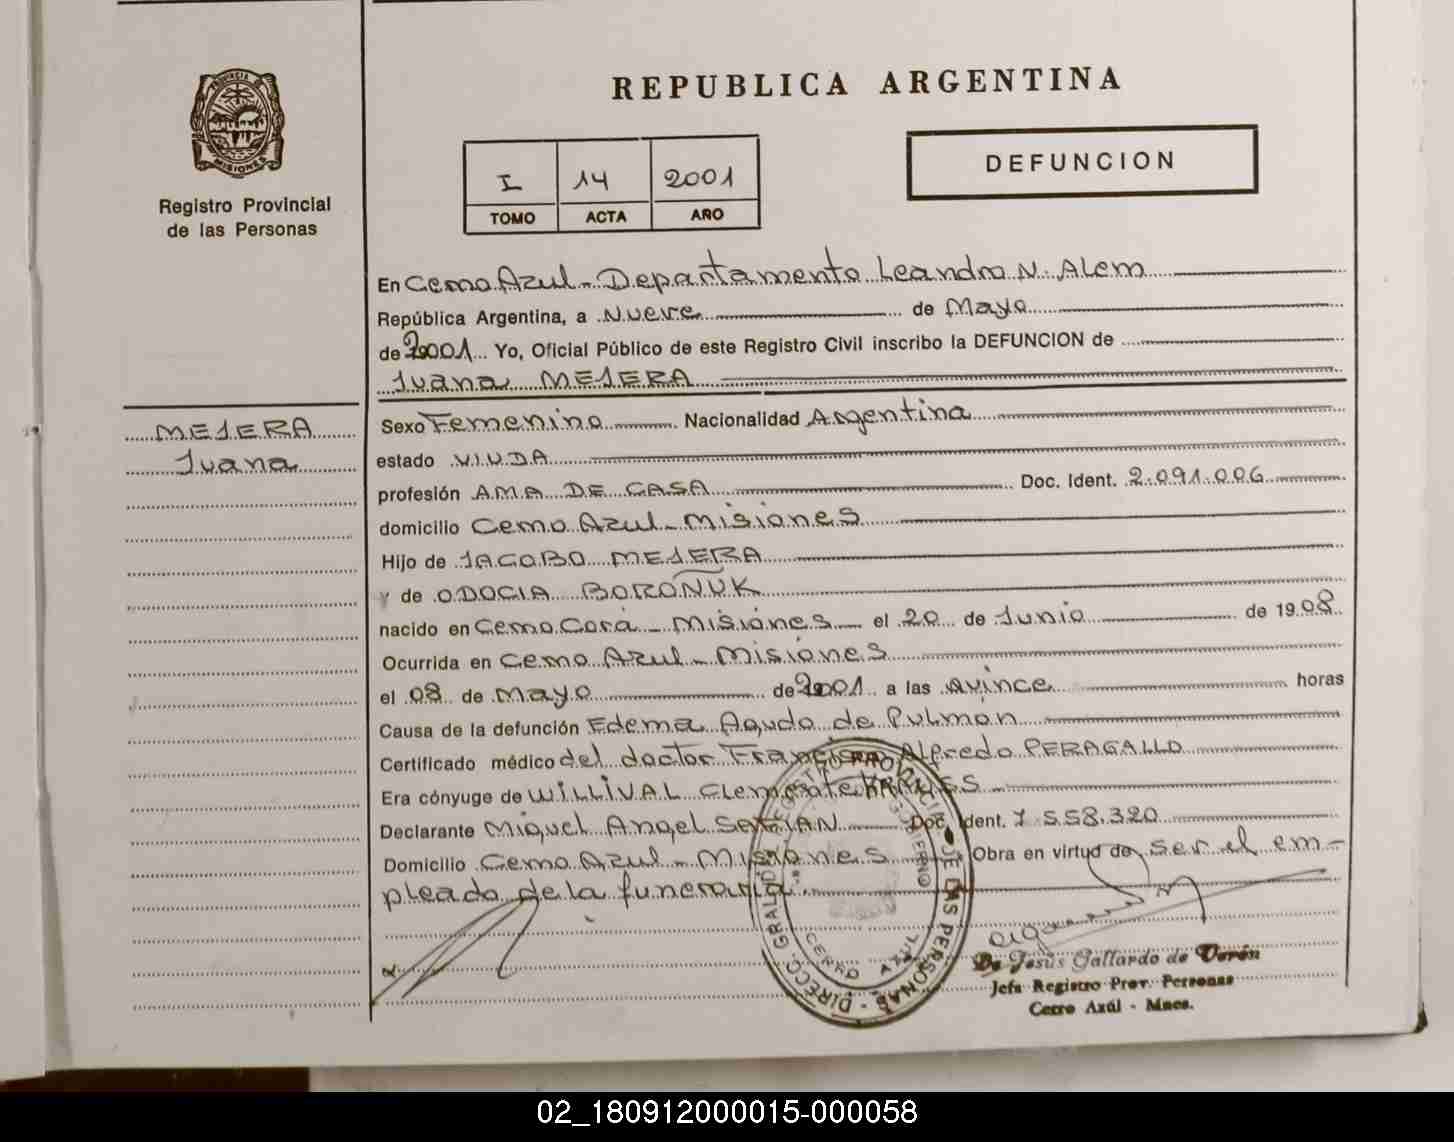 PROVINCIA DE
MISIONES
Registro Provincial
de las Personas
REPUBLICA ARGENTINA
I 14 2001
TOMO ACTA AÑO
DEFUNCION
En Cerro Azul - Departamento Leandro N. Alem
República Argentina, a Nueve de Mayo
de 2001 Yo, Oficial Público de este Registro Civil inscribo la DEFUNCION de
Juana MEJERA
MEJERA
Juana
Sexo Femenino Nacionalidad Argentina
estado VIUDA
profesión AMA DE CASA Doc. Ident. 2.091.006
domicilio Cerro Azul - Misiones
Hijo de JACOBO MEJERA
y de ODOCIA BOROÑUK
nacido en Cerro Corá - Misiones el 20 de Junio de 1908
Ocurrida en Cerro Azul - Misiones
el 08 de Mayo de 2001 a las quince horas
Causa de la defunción Edema Agudo de Pulmón
Certificado médico del doctor Francisco Alfredo PERAGALLO
Era cónyuge de WILLIVAL Clemente
Declarante Miguel Angel Doc. Ident. 7.558.320
Domicilio Cerro Azul - Misiones Obra en virtud de ser el em-
pleado de la funeraria
DIRECC. GRAL. DE REGISTRO PROVINCIAL DE LAS PERSONAS
CERRO AZUL
De Jesús Gallardo de Verón
Jefa Registro Prov. Personas
Cerro Azúl - Mnes.
02_180912000015-000058